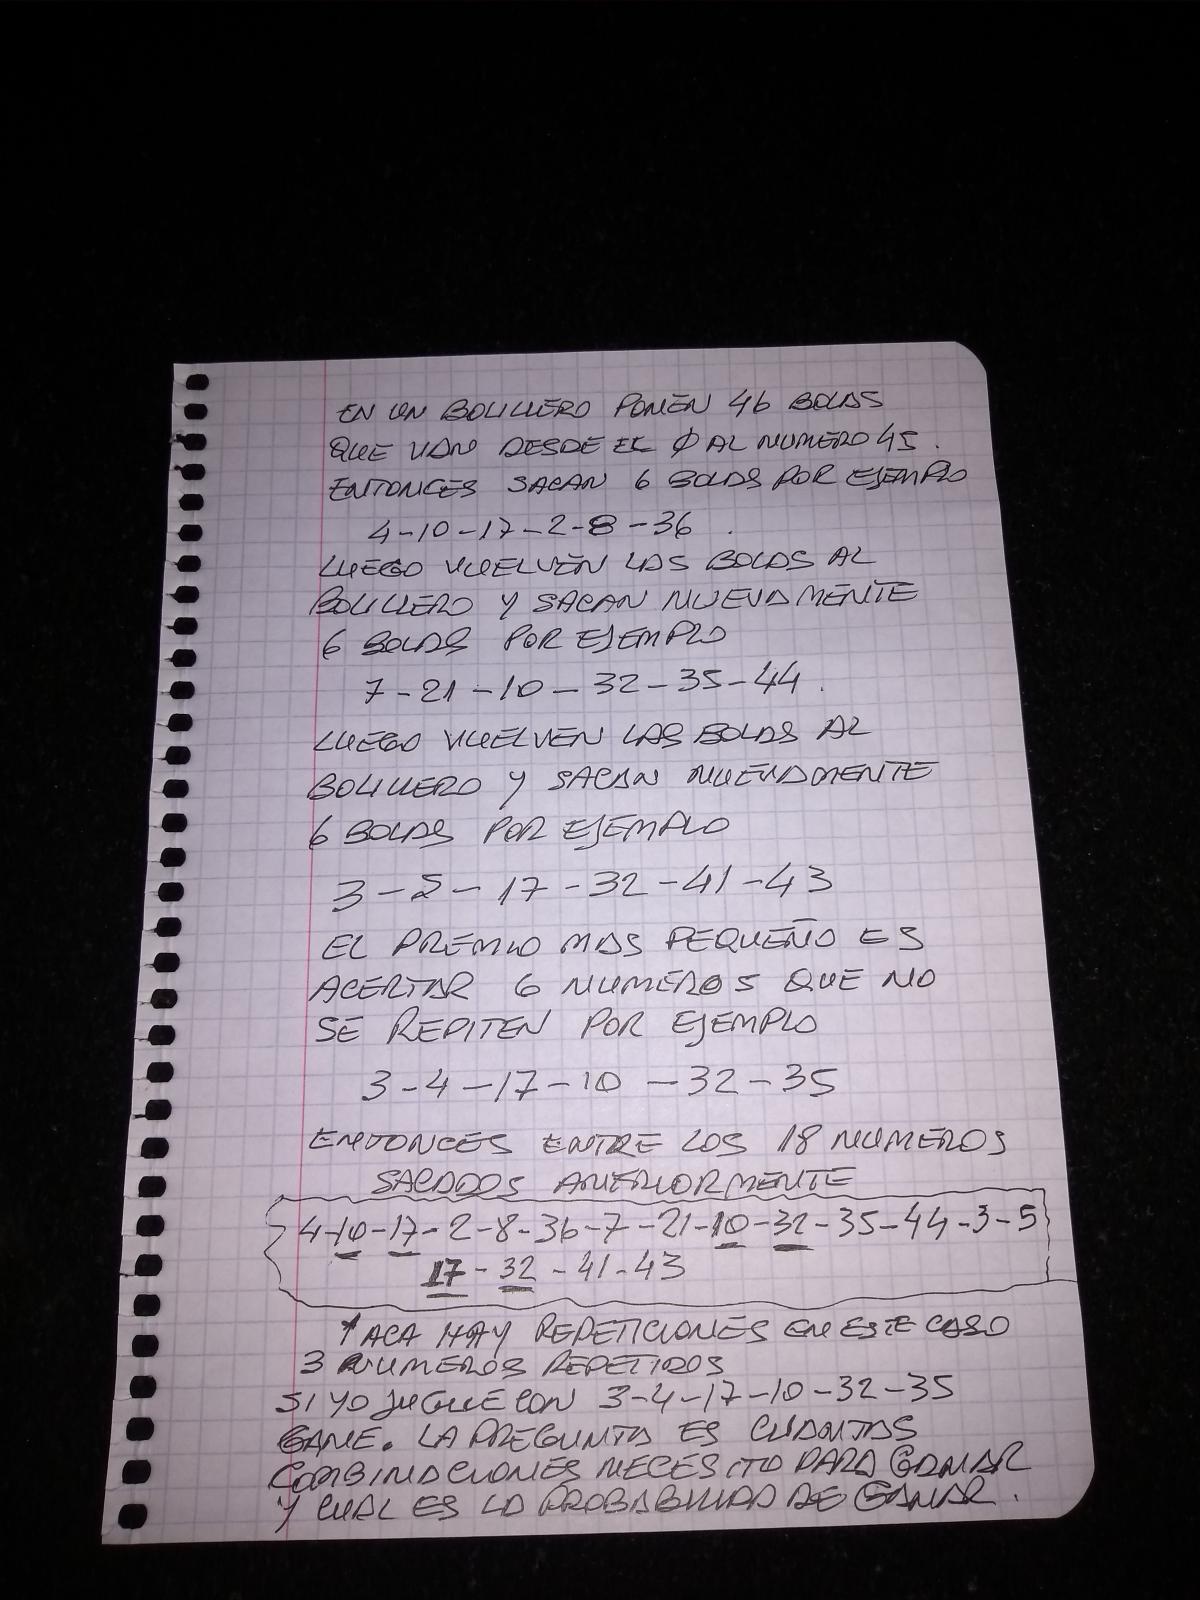 EN UN BOLILLERO PONEN 46 BOLAS
QUE VAN DESDE EL 0 AL NUMERO 45.
ENTONCES SACAN 6 BOLAS POR EJEMPLO
4-10-17-2-8-36.
LUEGO VUELVEN LAS BOLAS AL
BOLILLERO Y SACAN NUEVAMENTE
6 BOLAS POR EJEMPLO
7-21-10-32-35-44.
LUEGO VUELVEN LAS BOLAS AL
BOLILLERO Y SACAN NUEVAMENTE
6 BOLAS POR EJEMPLO
3-5-17-32-41-43
EL PREMIO MAS PEQUEÑO ES
ACERTAR 6 NUMEROS QUE NO
SE REPITEN POR EJEMPLO
3-4-17-10-32-35
ENTONCES ENTRE LOS 18 NUMEROS
SACADOS ANTERIORMENTE
4-10-17-2-8-36-7-21-10-32-35-44-3-5
17-32-41-43
ACA HAY REPETICIONES EN ESTE CASO
3 NUMEROS REPETIDOS
SI YO JUGUE CON 3-4-17-10-32-35
GANE. LA PREGUNTA ES CUANTAS
COMBINACIONES NECESITO PARA GANAR
Y CUAL ES LA PROBABILIDAD DE GANAR.